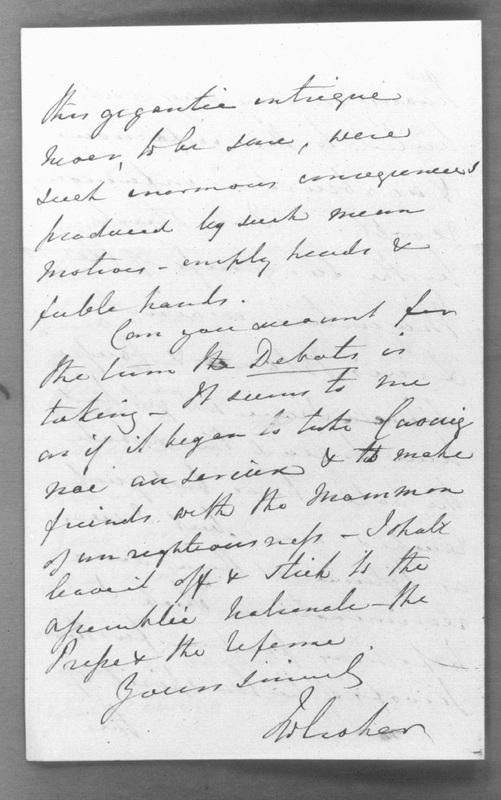 this gigantic intrigue
never, to be sure, were
such enormous consequences
produced by such mean
motives - empty heads &
feeble hands.
Can you account for
the turn the Debats is
taking - It seems to me
as if it began to take
au serieux & to make
friends with the Mammon
of unrighteousness - I shall
leave it off & stick to the
Assemblée Nationale - the
Presse & the
Yours sincerely
JWCroker